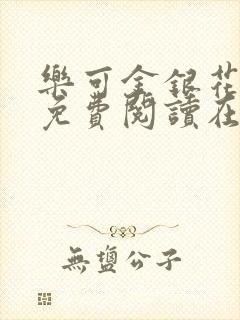 樂可金銀花
免費閱讀在
無鹽公子